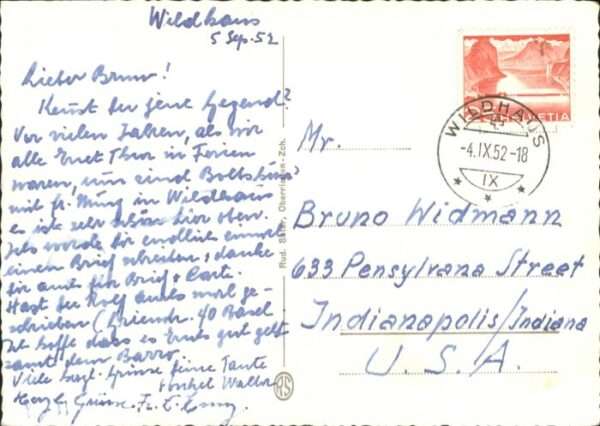 Wildhaus
5 Sep. 52
Lieber Bruno!
Kennst du jene Gegend?
Vor vielen Jahren, als wir
alle Ernet Thur in Ferien
waren, uns sind
mit fr. in Wildhaus
es ist sehr schön hier oben.
Ich werde dir endlich einmal
einen Brief schreiben, danke
dir auch für Brief + Carte.
Hast du Rolf auch mal ge-
schrieben 40 Basel
Ich hoffe dass es Euch gut geht
samt dem
Viele Grüsse deine Tante
Onkel Walter
Herzl. Grüsse. Fr. E.
HELVETIA
WILDHAUS
-4.IX.52-18
IX
Mr.
Bruno Widmann
633 Pensylvana Street
Indianapolis/Indiana
U.S.A.
Rud. Suter, Oberrieden-Zch.
RS